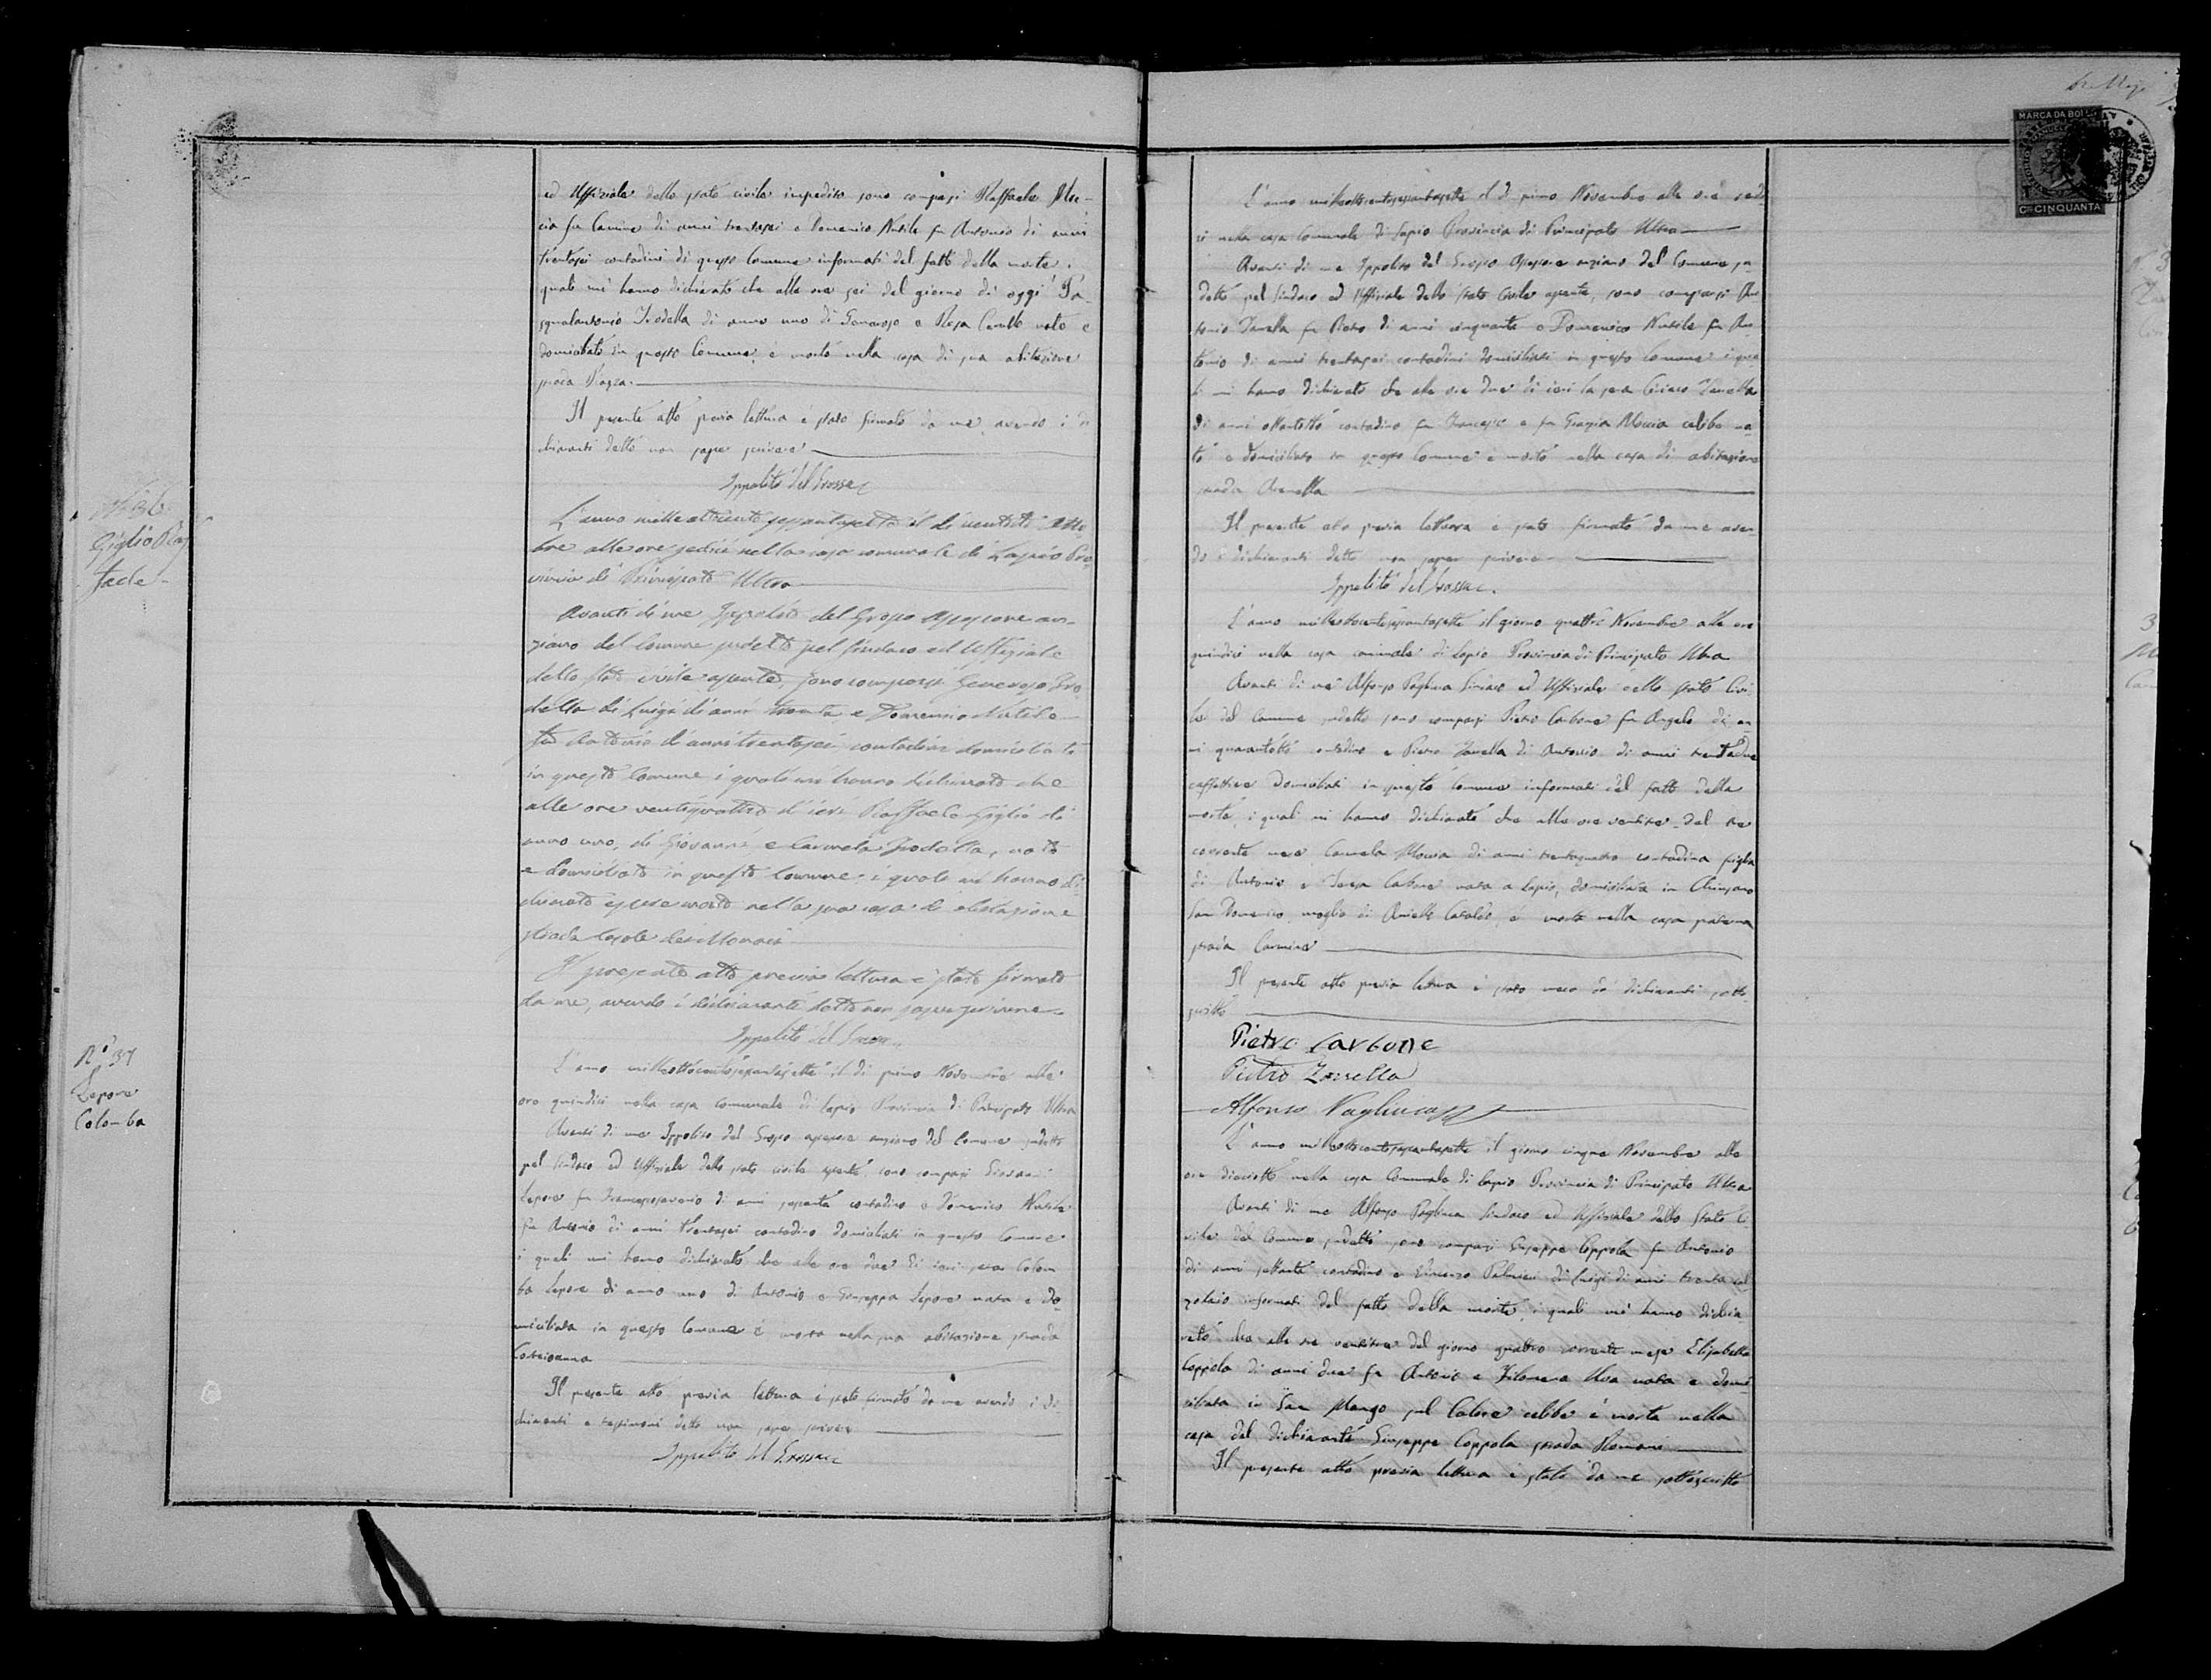 ed Uffiziale dello stato civile impedito sono comparsi Raffaele Moc-
cia fu Carmine di anni trentasei e Domenico Nutile fu Antonio di anni
trentasei contadini di questo Comune informati del fatto della morte i
quali mi hanno dichiarato che alle ore sei del giorno di oggi Pa-
squalantonio Trodella di anno uno di Generoso e Rosa Carullo nato e
domiciliato in questo Comune, è morto nella casa di sua abitazione
strada Piazza.
Il presente atto previa lettura è stato firmato da me avendo i di
chiaranti detto non saper scrivere
Ippolito del Grosso
N° 36
Giglio Raf
faele
L'anno milleottocentosessantasette il dì ventotto Otto-
bre alle ore sedici nella casa comunale di Lapio Pro-
vincia di Principato Ultra
Avanti di me Ippolito del Grosso Assessore an-
ziano del Comune sudetto pel Sindaco ed Uffiziale
dello Stato civile assente, sono comparsi Generoso Tro
della di Luigi di anni trenta e Domenico Nutile
fu Antonio di anni trentasei contadini domiciliati
in questo Comune i quali mi hanno dichiarato che
alle ore ventiquattro d'ieri Raffaele Giglio di
anno uno, di Giovanni e Carmela Trodella, nato
e domiciliato in questo Comune, i quali mi hanno di
chiarato essere morto nella sua casa di abitazione
strada Casale
Il presente atto previa lettura è stato firmato
da me, avendo i dichiaranti detto non saper scrivere
Ippolito del Grosso
N° 37
Lepore
Colomba
L'anno milleottocentosessantasette il dì primo Novembre alle
ore quindici nella casa Comunale di Lapio Provincia di Principato Ultra
Avanti di me Ippolito del Grosso assessore anziano del Comune sudetto
pel Sindaco ed Uffiziale dello stato civile assente, sono comparsi Giovanni
Lepore fu Francescosaverio di anni sessanta contadino e Domenico Nutile
fu Antonio di anni trentasei contadino domiciliati in questo Comune
i quali mi hanno dichiarato che alle ore due di ieri sera Colom
ba Lepore di anno uno di Antonio e Giuseppa Lepore nata e do
miciliata in questo Comune è morta nella sua abitazione strada
Il presente atto previa lettura è stato firmato da me avendo i di
chiaranti e testimoni detto non saper scrivere
Ippolito del Grosso
MARCA DA BOLLO
CMI CINQUANTA
L'anno milleottocentosessantasette il dì primo Novembre alle ore sedi
ci nella casa Comunale di Lapio Provincia di Principato Ultra
Avanti di me Ippolito del Grosso Assessore anziano del Comune su
detto pel Sindaco ed Uffiziale dello Stato Civile assente, sono comparsi An
tonio Zanella fu Pietro di anni cinquanta e Domenico Nutile fu An
tonio di anni trentasei contadini domiciliati in questo Comune i qua
li mi hanno dichiarato che alle ore due di ieri la sera Ciriaco Zanella
di anni ottantotto contadino fu Francesco e fu Grazia Moccia celibe na
to e domiciliato in questo Comune è morto nella casa di abitazione
strada Arenella
Il presente atto previa lettura è stato firmato da me aven
do i dichiaranti detto non saper scrivere
Ippolito del Grosso.
L'anno milleottocentosessantasette il giorno quattro Novembre alle ore
quindici nella casa comunale di Lapio Provincia di Principato Ultra
Avanti di me Alfonso Pagliuca Sindaco ed Uffiziale dello stato Civi
le del Comune sudetto sono comparsi Pietro Carbone fu Angelo di an
ni quarantotto contadino e Pietro Zanella di Antonio di anni trentadue
caffettiere domiciliati in questo Comune informati del fatto della
morte, i quali mi hanno dichiarato che alle ore ventitre del tre
corrente mese Carmela Moccia di anni trentaquattro contadina figlia
di Antonio e Carbone nata a Lapio, domiciliata in Chiusano
San Domenico, moglie di Aniello Cataldo, è morta nella casa paterna
strada Carmine
Il presente atto previa lettura è stato meco da' dichiaranti sotto-
scritto
Pietro Carbone
Pietro Zanella
Alfonso Pagliuca
L'anno milleottocentosessantasette il giorno cinque Novembre alle
ore diciotto nella casa Comunale di Lapio Provincia di Principato Ultra
Avanti di me Alfonso Pagliuca Sindaco ed Uffiziale dello Stato Ci-
vile del Comune sudetto sono comparsi Giuseppe Coppola fu Antonio
di anni settanta contadino e Vincenzo Palmieri di Luigi di anni trenta cal
zolaio informati del fatto della morte, i quali mi hanno dichia
rato che alle ore ventitre del giorno quattro corrente mese Elisabetta
Coppola di anni due fu Antonio e Filomena Uva nata e domi
ciliata in San Mango sul Calore celibe è morta nella
casa del dichiarante Giuseppe Coppola strada Romani
Il presente atto previa lettura è stato da me sottoscritto